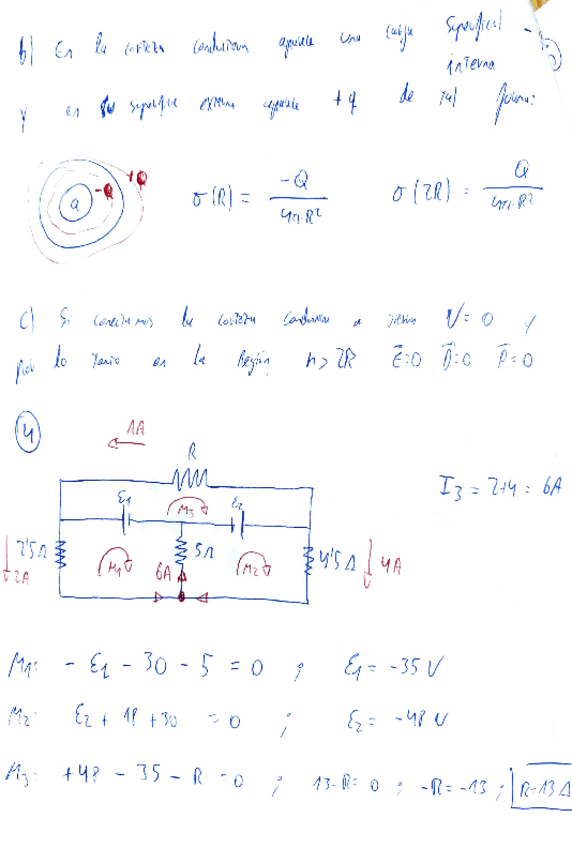 b) En la corteza conductora aparece una carga superficial -Q
interna
y en su superficie externa aparece +q de tal forma:
Q -Q +Q
σ(R) = -Q / 4π·R² σ(2R) = Q / 4π·R²
c) Si conectamos la corteza conductora a tierra V=0 y
por lo tanto en la Región r > 2R E=0 D=0 P=0
4
1A
R
I3 = 2+4 = 6A
ε1 M3 ε2
2'5Ω 2A M1 6A 5Ω M2 4'5Ω 4A
M1: - ε1 - 30 - 5 = 0 ; ε1 = -35 V
M2: ε2 + 18 + 30 = 0 ; ε2 = -48 V
M3: +48 - 35 - R = 0 ; 13-R = 0 ; -R = -13 ; R=13Ω